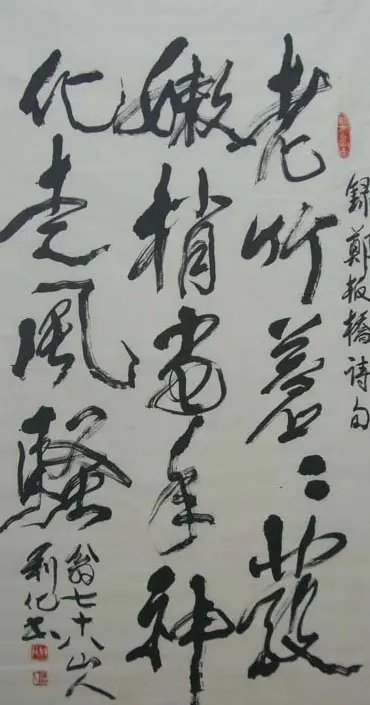 錄鄭板橋詩句
老竹蒼〻發
嫩梢當年神
化走風騷
翁七十八山人
利化书